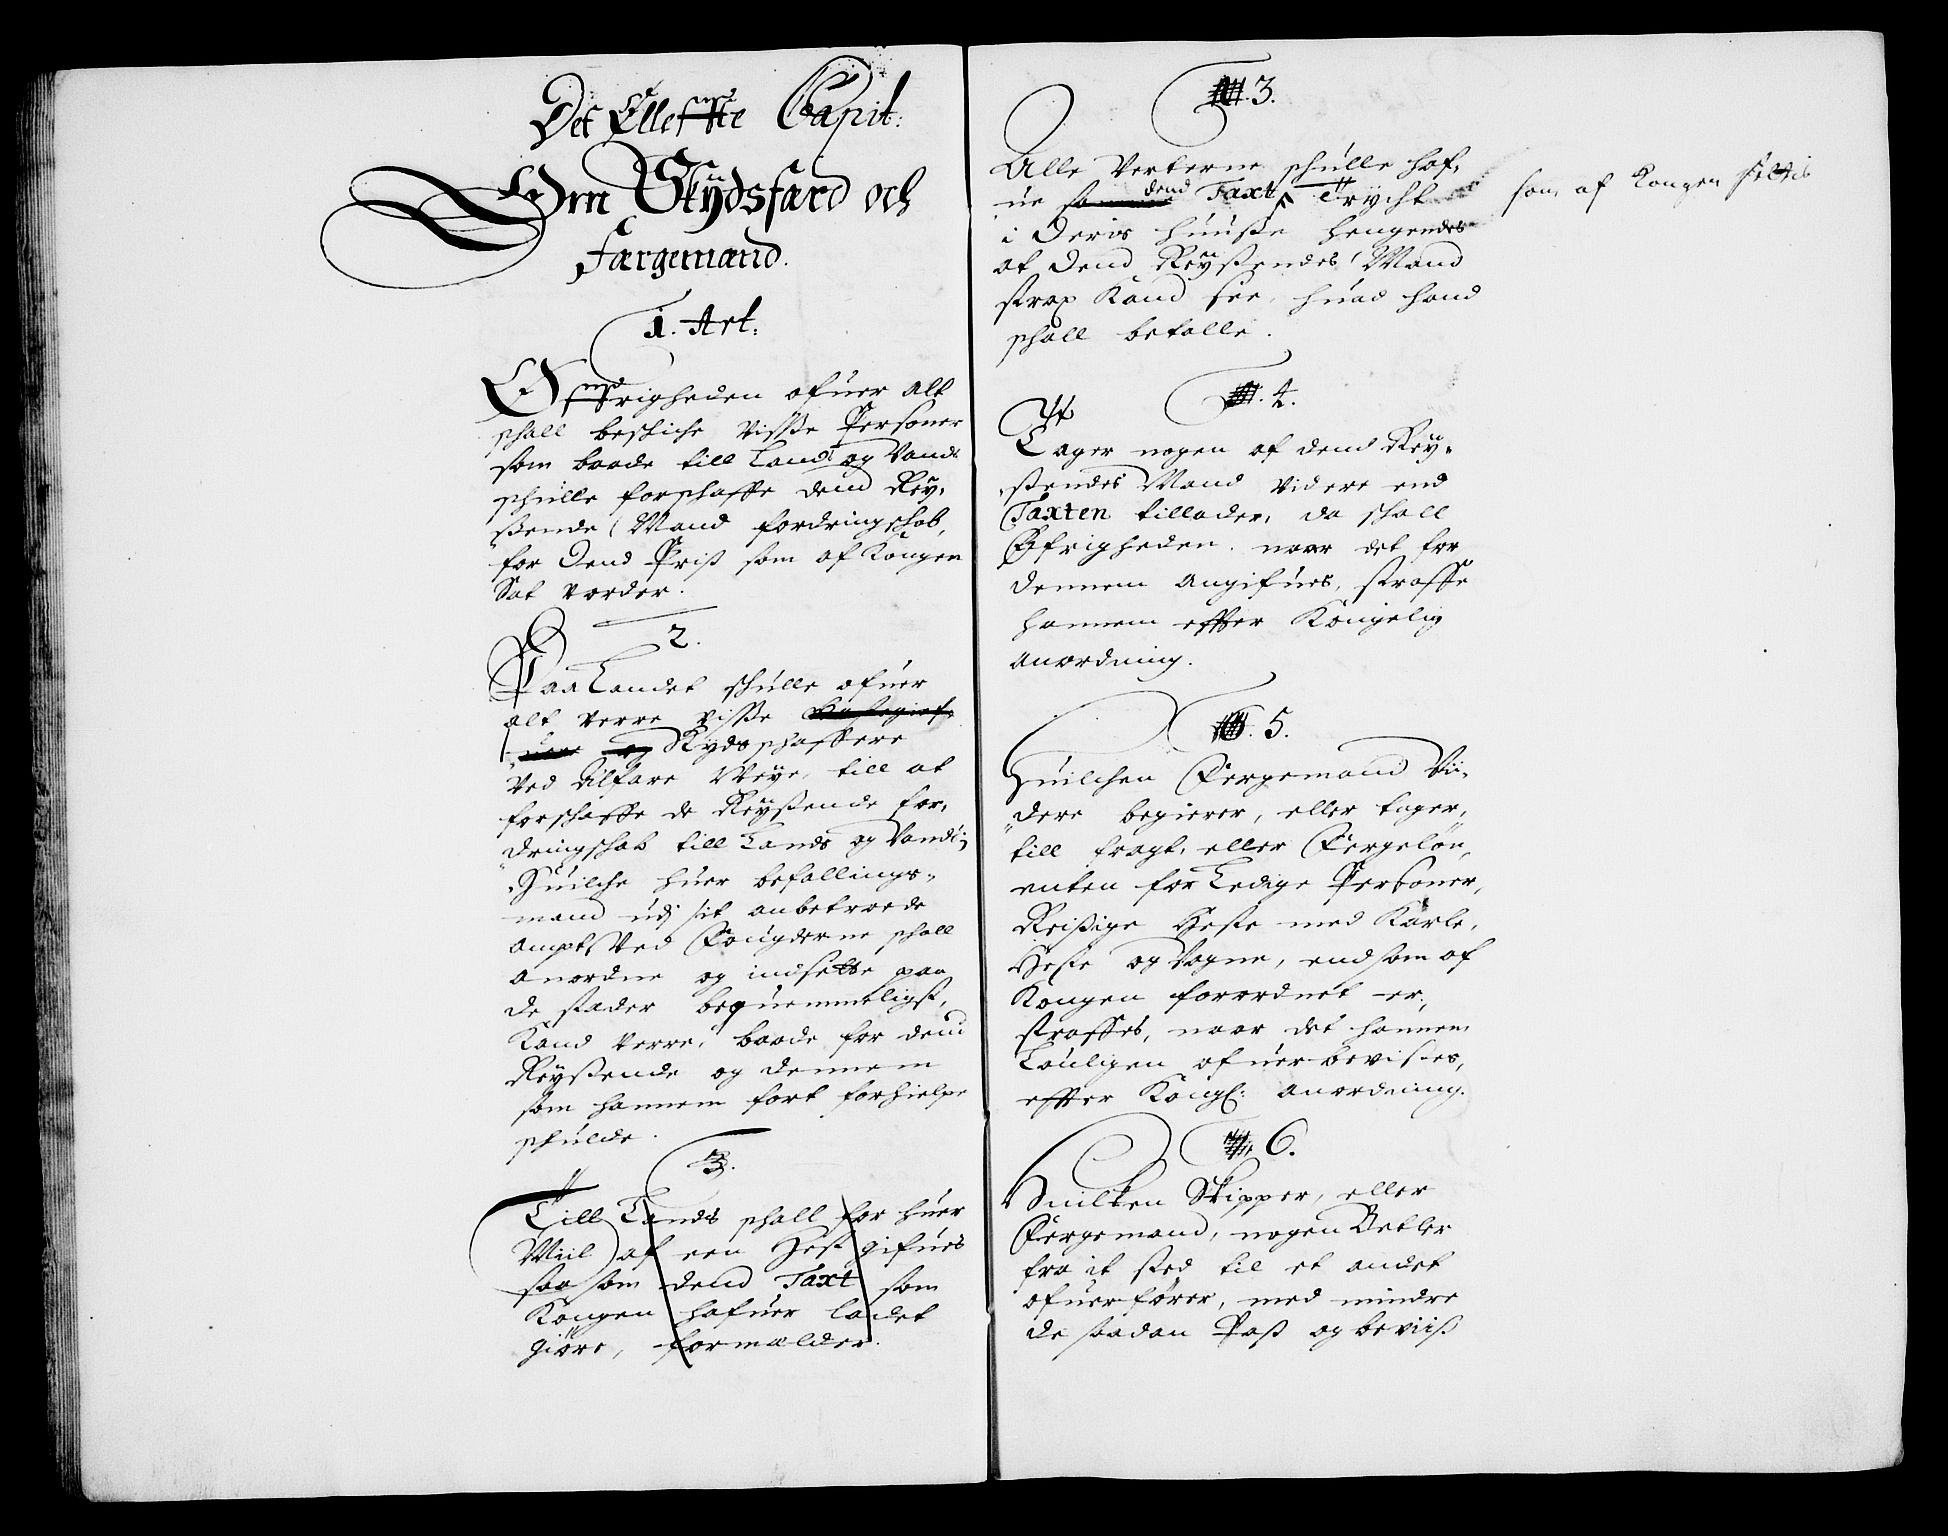 Det Elleffte Capit:
Om Skydsfærd och
Færgemænd.
1. Art:
Øffrigheden ofuer alt
schall beschiche visße Personer
som baade till Lands og Vands
schulle forschaffe dend Rey-
ßende Mand fordringschab,
for dend Priß som af Kongen
Sat vorder.
2.
Paa Landet schulle ofuer
alt verre visße
og Skydsschaffere
Ved Alfare Veye, till at
forschaffe de Reyßende for-
dringschab till Lands og Vands,
Huilche huer befallings-
mand udj sit anbetroede
ampt, Ved Fougderne schall
anordne og indsette paa
de stæder beqvemmeligst,
Kand verre, baade for dend
Reyßende og dennem
som hannem fort forhielpe
schulde.
3.
Till Lands schall for huer
Miil af een Hest gifues
saa som dend Taxt som
Kongen hafuer ladet
giøre, formælder.
3.
Alle Verterne schulle haf-
ue dend Taxt, Trycht som af Kongen settis
i deris huuße hengendes
at dend Reyßendes Mand
strax Kand see, huad hand
schall betalle.
4.
Tager nogen af dend Rey-
ßendes Mand videre end
Taxten tillader, da schall
Øfrigheden, naar det for
dennem angifues, straffe
hannem effter Kongelig
anordning.
5.
Huilchen Fergemand Vi-
dere begierer, eller tager,
till fragt, eller Fergeløn,
enten for Ledige Personer,
Reißige Heste med Karle,
Heste og Vogne, end som af
Kongen forordnet er,
straffes, naar det hannem
Louligen ofuerbevises,
effter Kongl: anordning.
6.
Huilken Skipper, eller
Fergemand, nogen Betler
fra it sted til et andet
ofuerfører, med mindre
de saadan Paß og beviiß